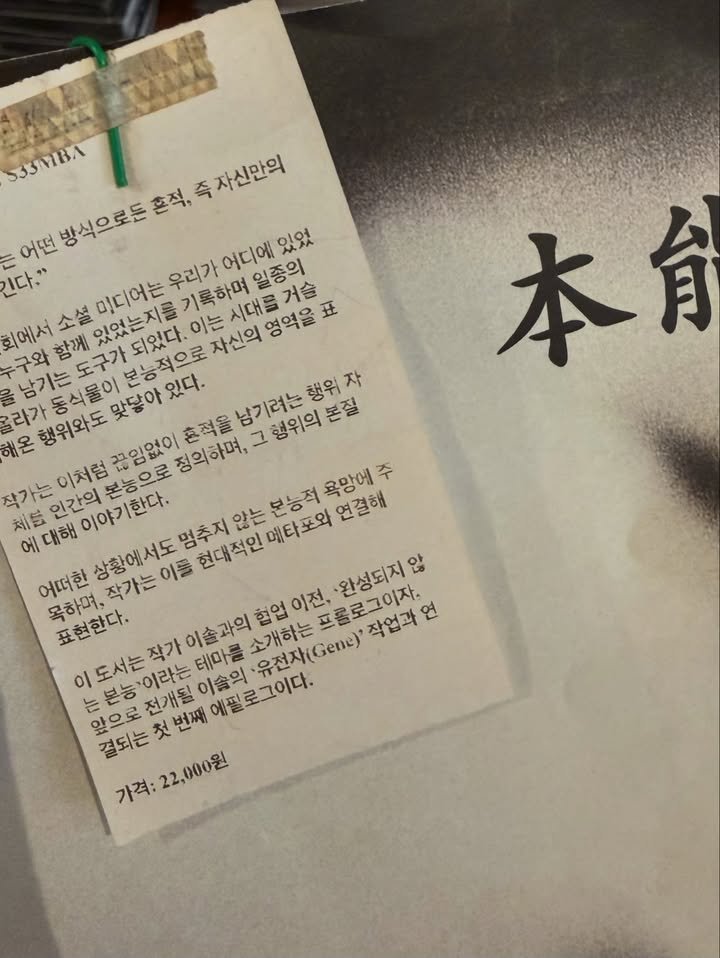 S33MBA
는 어떤 방식으로든 흔적, 즉 자신만의
긴다.”
회에서 소셜 미디어는 우리가 어디에 있었
누구와 함께 있었는지를 기록하며 일종의
을 남기는 도구가 되었다. 이는 시대를 거슬
올라가 동식물이 본능적으로 자신의 영역을 표
해온 행위와도 맞닿아 있다.
작가는 이처럼 끊임없이 흔적을 남기려는 행위 자
체를 인간의 본능으로 정의하며, 그 행위의 본질
에 대해 이야기한다.
어떠한 상황에서도 멈추지 않는 본능적 욕망에 주
목하며, 작가는 이를 현대적인 메타포와 연결해
표현한다.
이 도서는 작가 이솔과의 협업 이전, ‘완성되지 않
는 본능’이라는 테마를 소개하는 프롤로그이자,
앞으로 전개될 이솔의 ‘유전자(Gene)’ 작업과 연
결되는 첫 번째 에필로그이다.
가격: 22,000원
本能